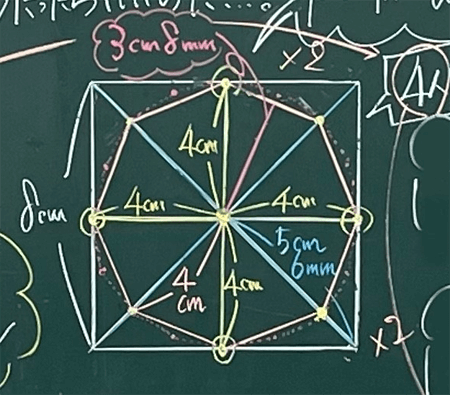 3cm8mm
×2
4cm
8cm
4cm
4cm
5cm
6mm
4
cm
4cm
×2